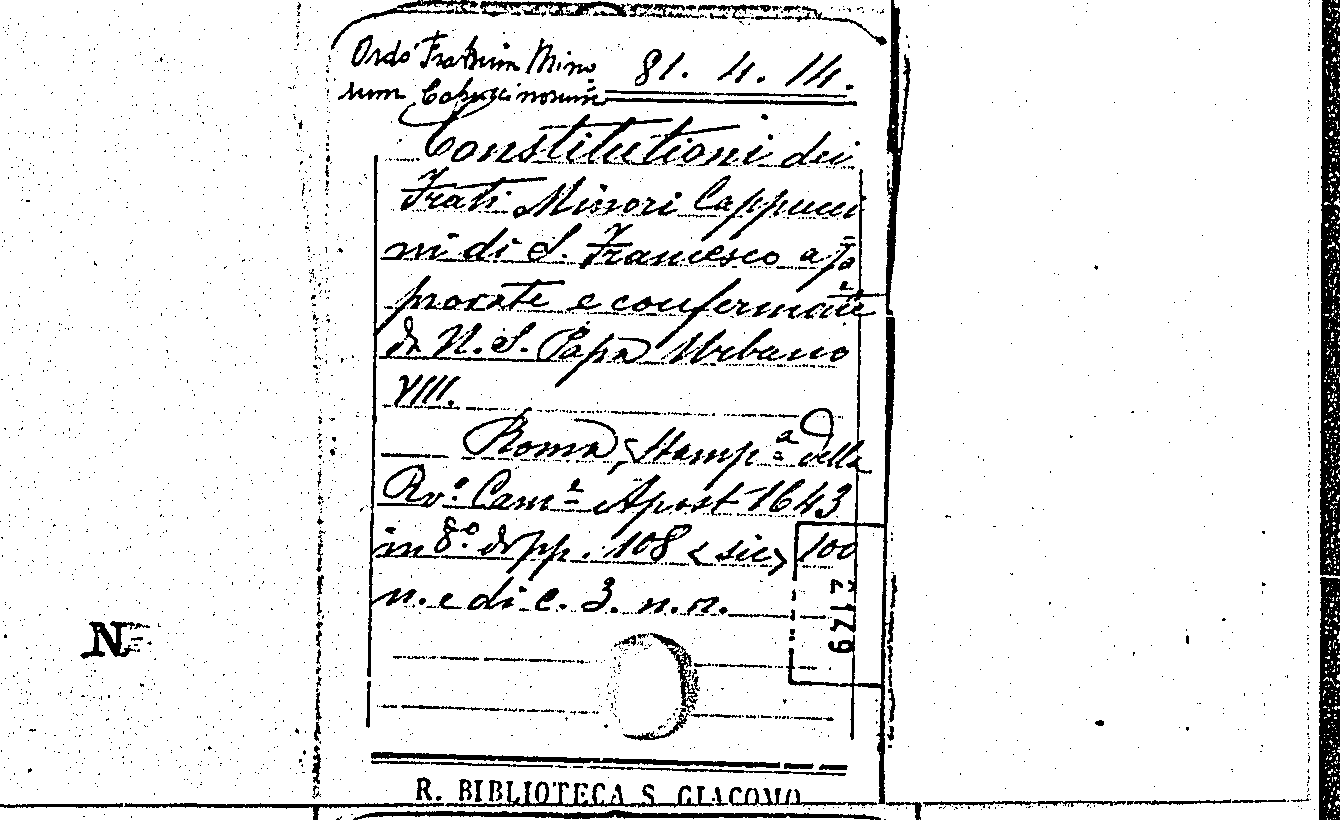 Ordo Fratrum Mino
rum Capuccinorum
81. 4. 14.
Constitutioni dei
Frati Minori Cappucci
ni di S. Francesco ap
provate e confermate
da N. S. Papa Urbano
VIII.
— Roma, Stamp.ª della
Rv.ª Cam.ª Apost 1643
in 8.º di pp. 108 < sic > 100
n. e di c. 3. n. n.
2179
N
R. BIBLIOTECA S. GIACOMO